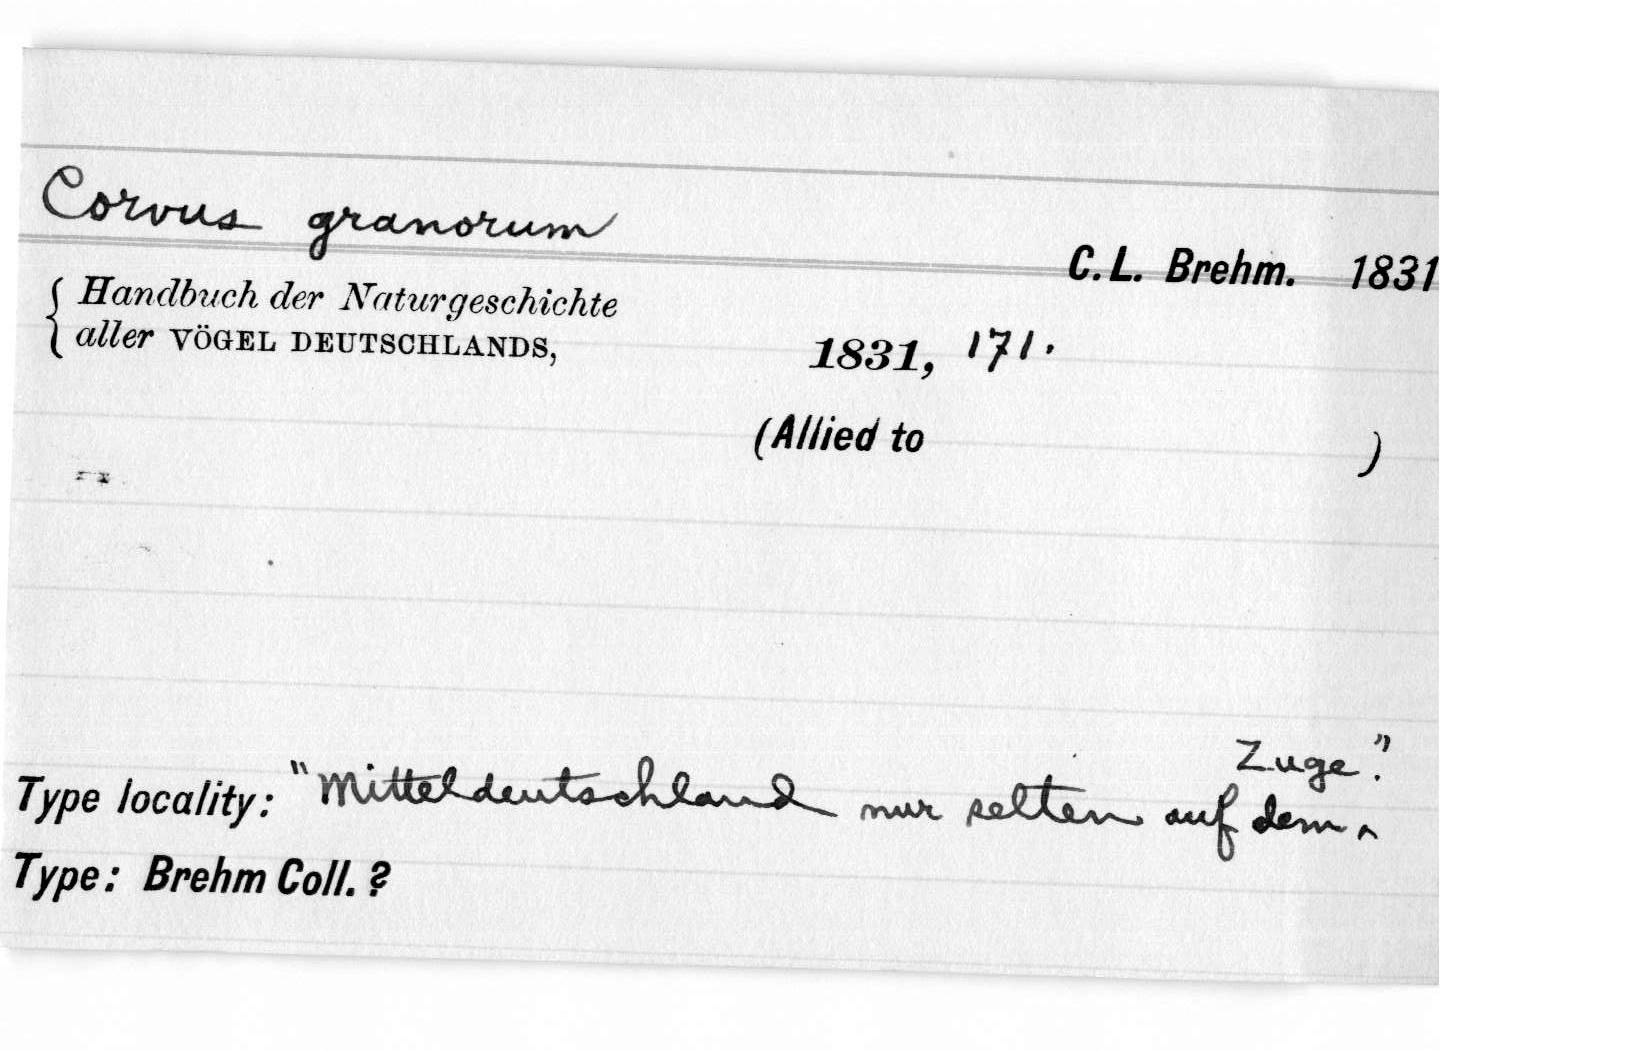 Corvus granorum
C. L. Brehm. 1831
Handbuch der Naturgeschichte
aller VÖGEL DEUTSCHLANDS,
1831, 171.
(Allied to )
Zuge."
Type locality: "Mitteldeutschland nur selten auf dem ^
Type: Brehm Coll. ?